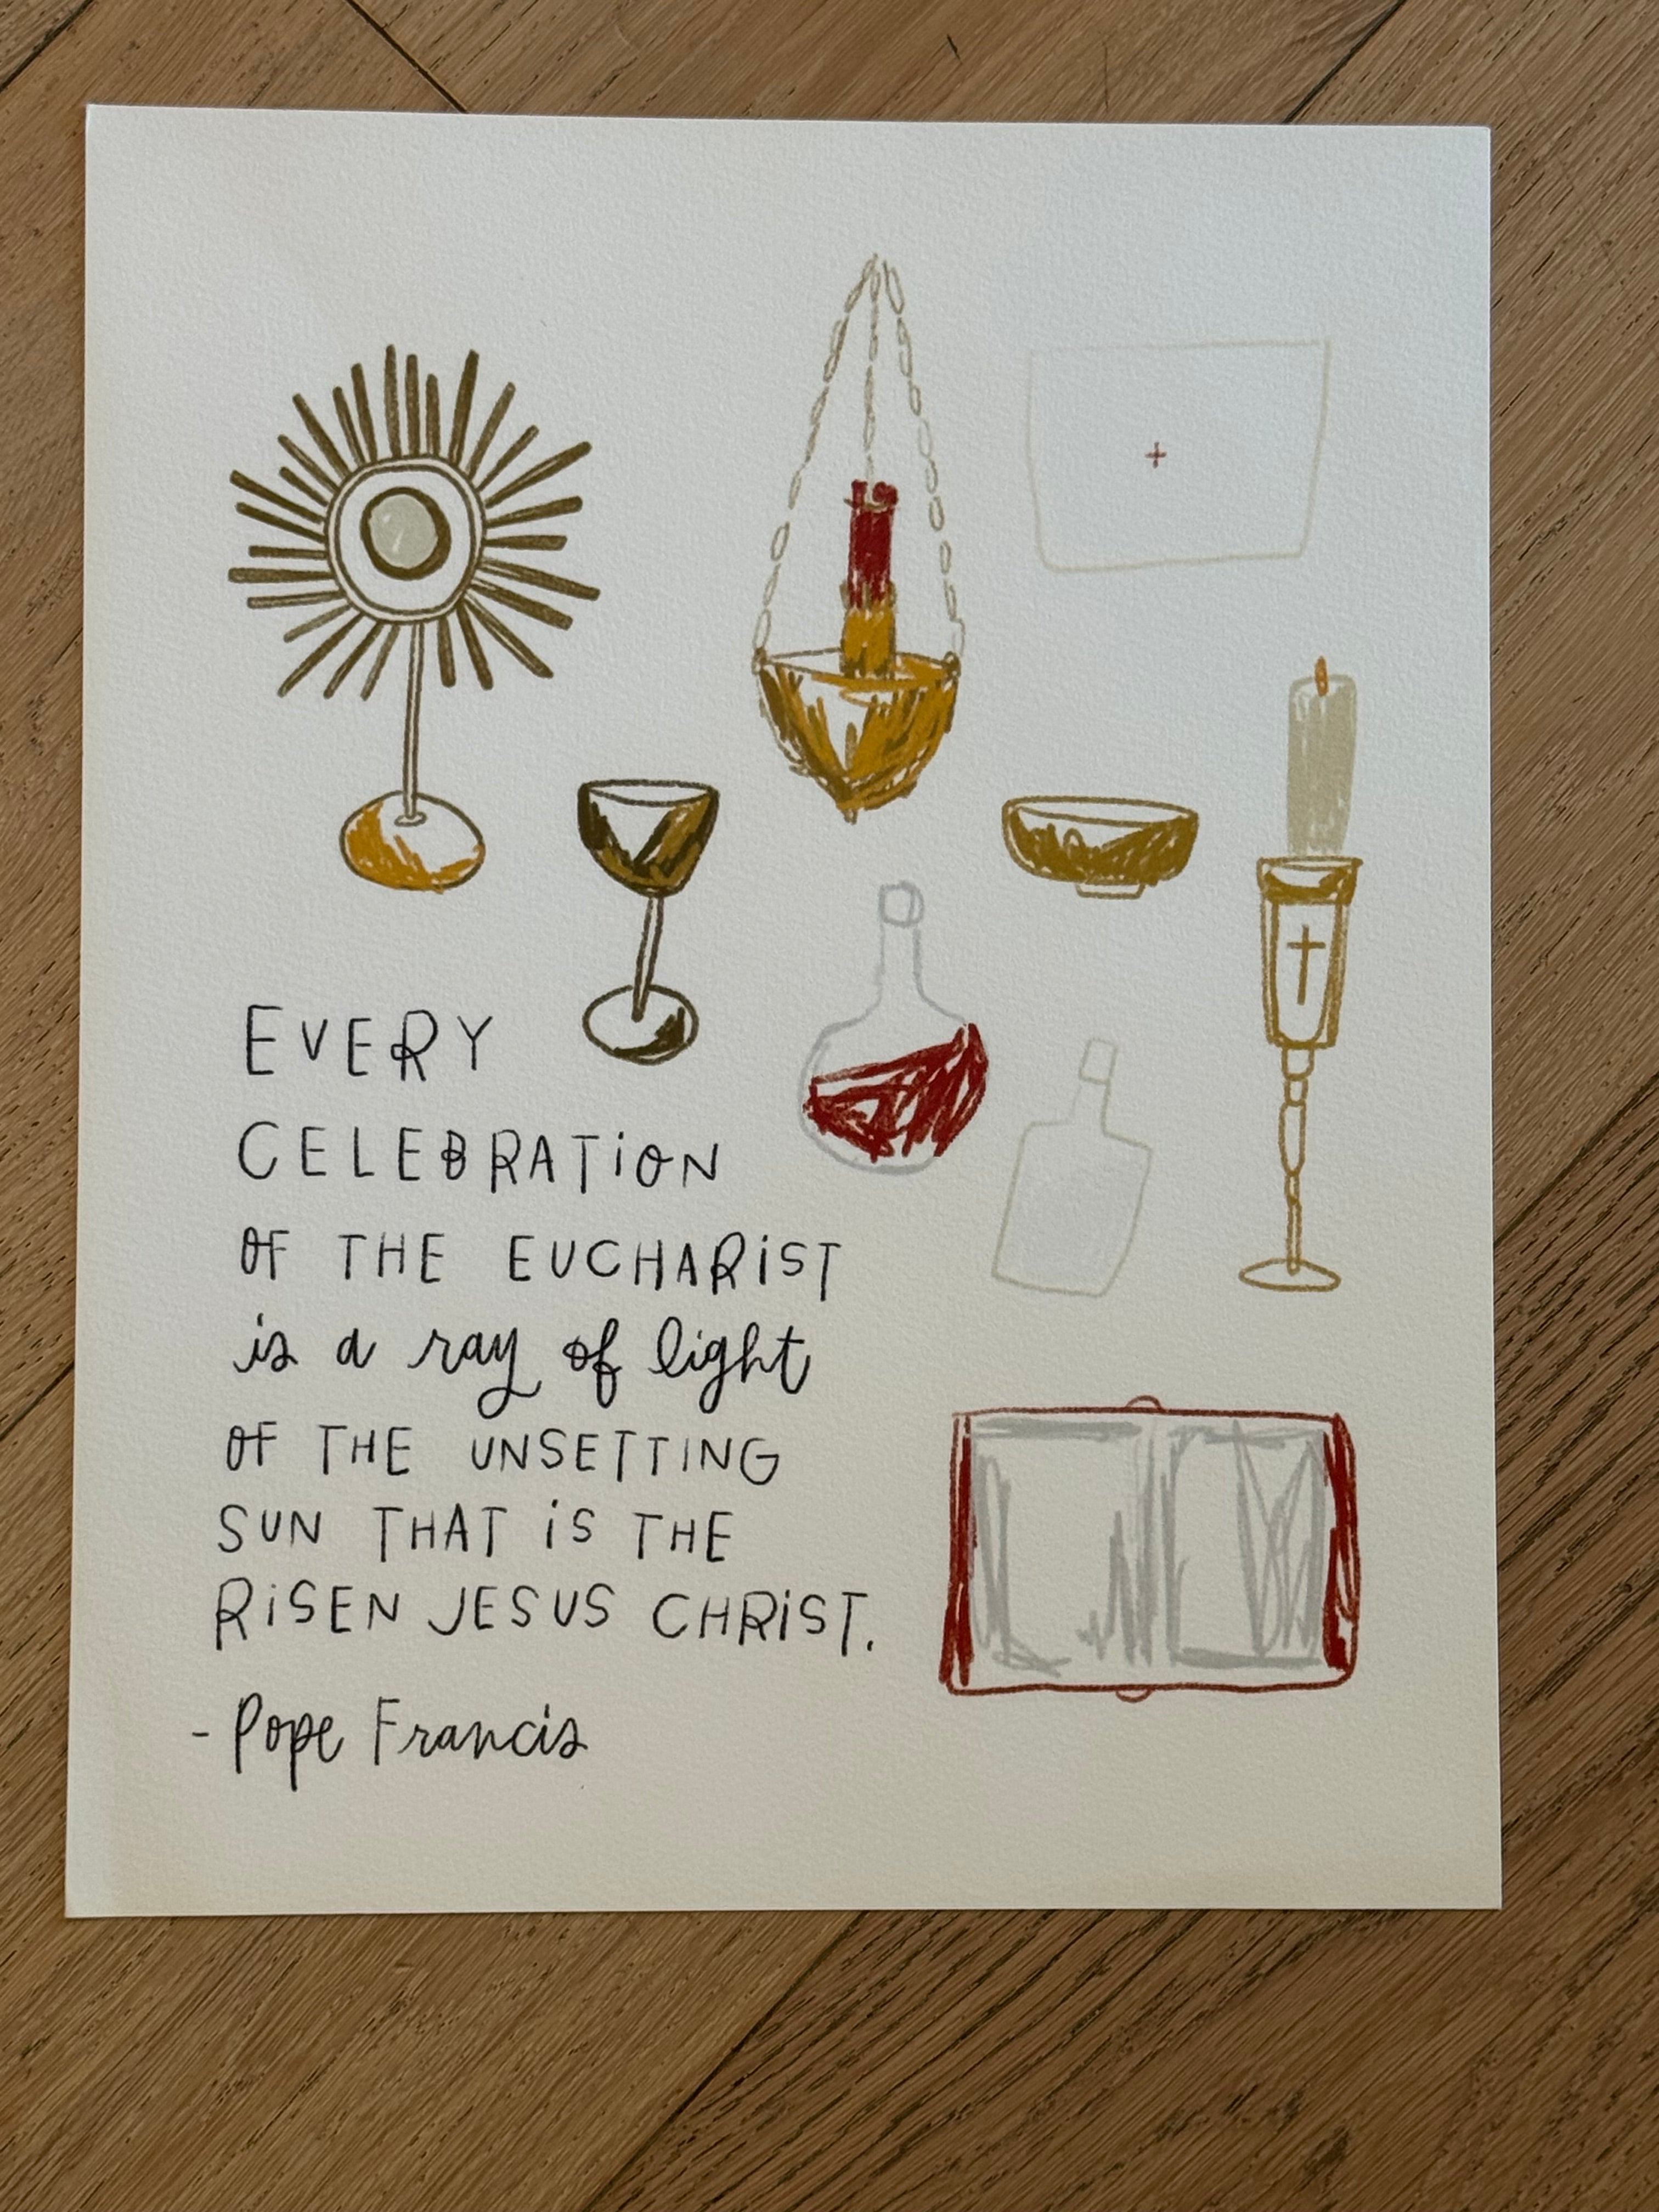 EVERY
CELEBRATION
OF THE EUCHARIST
is a ray of light
OF THE UNSETTING
SUN THAT IS THE
RISEN JESUS CHRIST.
- Pope Francis